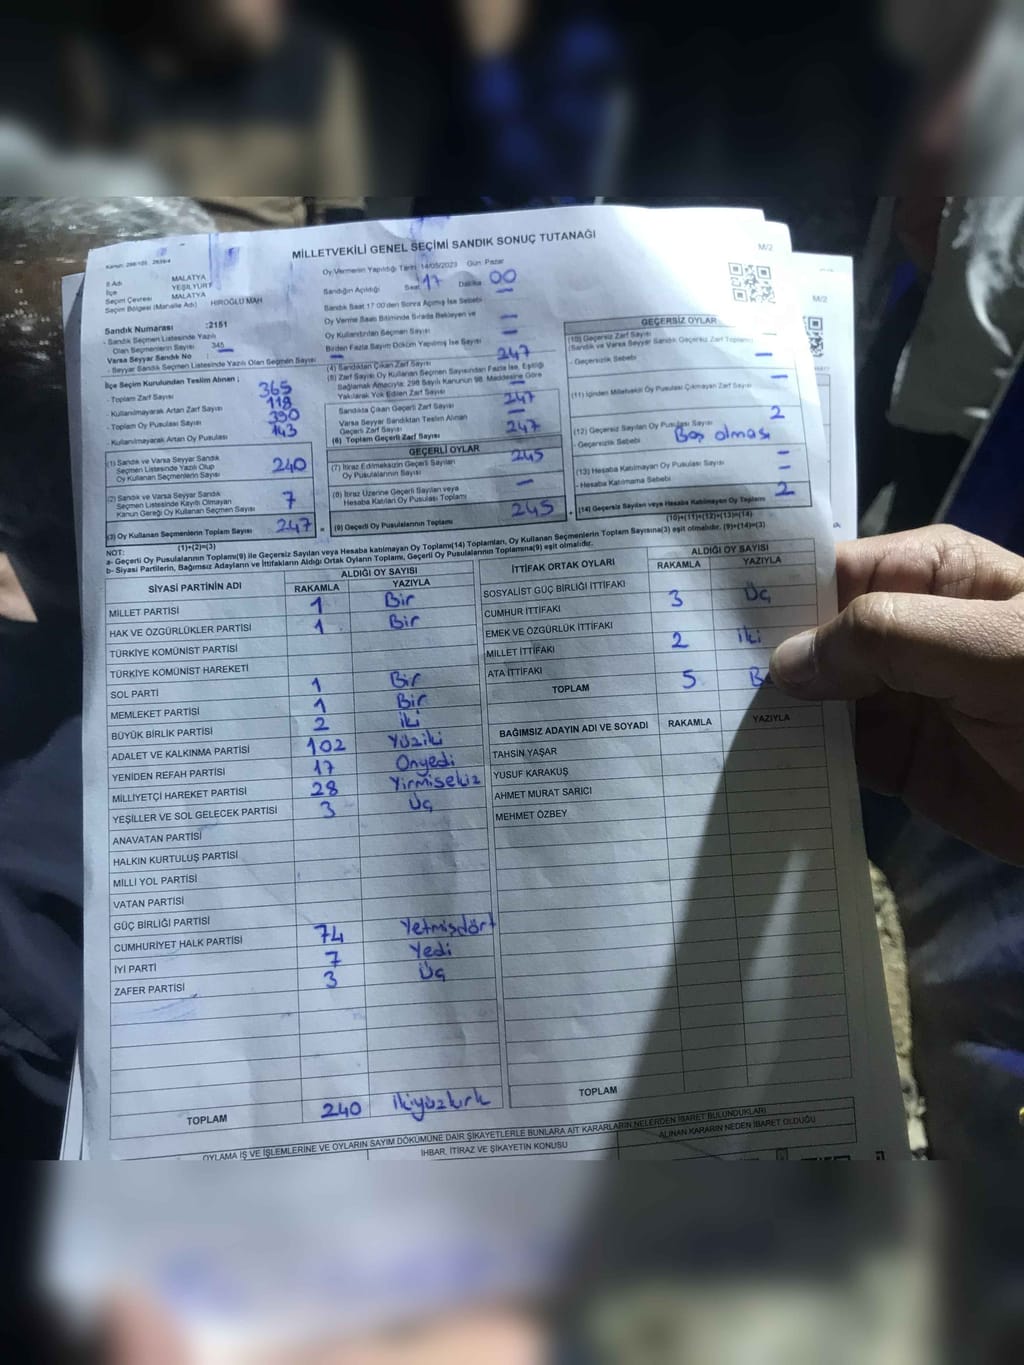 MİLLETVEKİLİ GENEL SEÇİMİ SANDIK SONUÇ TUTANAĞI
M/2
M/2
İl Adı MALATYA
İlçe YEŞİLYURT
Seçim Çevresi MALATYA
Seçim Bölgesi (Mahalle Adı) HIROĞLU MAH
Oy Vermenin Yapıldığı Tarih 14/05/2023 Gün Pazar
Sandığın Açıldığı Saat 17 Dakika 00
Sandık Saat 17:00'den Sonra Açılmış İse Sebebi
Oy Verme Saati Bitiminde Sırada Bekleyen ve
Oy Kullandırılan Seçmen Sayısı
Birden Fazla Sayım Döküm Yapılmış İse Sayısı
Sandık Numarası :2151
- Sandık Seçmen Listesinde Yazılı
Olan Seçmenlerin Sayısı 345
Varsa Seyyar Sandık No :
- Seyyar Sandık Seçmen Listesinde Yazılı Olan Seçmenlerin Sayısı
İlçe Seçim Kurulundan Teslim Alınan ;
- Toplam Zarf Sayısı 365
- Kullanılmayarak Artan Zarf Sayısı 118
- Toplam Oy Pusulası Sayısı 390
- Kullanılmayarak Artan Oy Pusulası 143
(1) Sandık ve Varsa Seyyar Sandık
Seçmen Listesinde Yazılı Olup
Oy Kullanan Seçmenlerin Sayısı 240
(2) Sandık ve Varsa Seyyar Sandık
Seçmen Listesinde Kayıtlı Olmayan
Kanun Gereği Oy Kullanan Seçmen Sayısı 7
(3) Oy Kullanan Seçmenlerin Toplam Sayısı 247
(1)+(2)=(3)
(4) Sandıktan Çıkan Zarf Sayısı 247
(5) Zarf Sayısı Oy Kullanan Seçmen Sayısından Fazla İse, Eşitliği
Sağlamak Amacıyla; 298 Sayılı Kanunun 98. Maddesine Göre
Yakılarak Yok Edilen Zarf Sayısı
Sandıkta Çıkan Geçerli Zarf Sayısı 247
Varsa Seyyar Sandıktan Teslim Alınan
Geçerli Zarf Sayısı
(6) Toplam Geçerli Zarf Sayısı 247
GEÇERLİ OYLAR
(7) İtiraz Edilmeksizin Geçerli Sayılan
Oy Pusulalarının Sayısı 245
(8) İtiraz Üzerine Geçerli Sayılan veya
Hesaba Katılan Oy Pusulası Toplamı
(9) Geçerli Oy Pusulalarının Toplamı 245
GEÇERSİZ OYLAR
(10) Geçersiz Zarf Sayısı
(Sandık ve Varsa Seyyar Sandık Geçersiz Zarf Toplamı)
- Geçersizlik Sebebi
(11) İçinden Milletvekili Oy Pusulası Çıkmayan Zarf Sayısı
(12) Geçersiz Sayılan Oy Pusulası Sayısı 2
- Geçersizlik Sebebi Boş olması
(13) Hesaba Katılmayan Oy Pusulası Sayısı
- Hesaba Katılmama Sebebi
(14) Geçersiz Sayılan veya Hesaba Katılmayan Oy Toplamı 2
(10)+(11)+(12)+(13)=(14)
NOT:
a- Geçerli Oy Pusulalarının Toplamı(9) ile Geçersiz Sayılan veya Hesaba katılmayan Oy Toplamı(14) Toplamları, Oy Kullanan Seçmenlerin Toplam Sayısına(3) eşit olmalıdır. (9)+(14)=(3)
b- Siyasi Partilerin, Bağımsız Adayların ve İttifakların Aldığı Ortak Oyların Toplamı, Geçerli Oy Pusulalarının Toplamına(9) eşit olmalıdır.
SİYASİ PARTİNİN ADI ALDIĞI OY SAYISI
RAKAMLA YAZIYLA
MİLLET PARTİSİ 1 Bir
HAK VE ÖZGÜRLÜKLER PARTİSİ 1 Bir
TÜRKİYE KOMÜNİST PARTİSİ
TÜRKİYE KOMÜNİST HAREKETİ
SOL PARTİ 1 Bir
MEMLEKET PARTİSİ 1 Bir
BÜYÜK BİRLİK PARTİSİ 2 iki
ADALET VE KALKINMA PARTİSİ 102 Yüziki
YENİDEN REFAH PARTİSİ 17 Onyedi
MİLLİYETÇİ HAREKET PARTİSİ 28 Yirmisekiz
YEŞİLLER VE SOL GELECEK PARTİSİ 3 Üç
ANAVATAN PARTİSİ
HALKIN KURTULUŞ PARTİSİ
MİLLİ YOL PARTİSİ
VATAN PARTİSİ
GÜÇ BİRLİĞİ PARTİSİ
CUMHURİYET HALK PARTİSİ 74 Yetmişdört
İYİ PARTİ 7 Yedi
ZAFER PARTİSİ 3 Üç
TOPLAM 240 ikiyüzkırk
İTTİFAK ORTAK OYLARI ALDIĞI OY SAYISI
RAKAMLA YAZIYLA
SOSYALİST GÜÇ BİRLİĞİ İTTİFAKI
CUMHUR İTTİFAKI 3 Üç
EMEK VE ÖZGÜRLÜK İTTİFAKI
MİLLET İTTİFAKI 2 iki
ATA İTTİFAKI
TOPLAM 5
BAĞIMSIZ ADAYIN ADI VE SOYADI RAKAMLA YAZIYLA
TAHSİN YAŞAR
YUSUF KARAKUŞ
AHMET MURAT SARICI
MEHMET ÖZBEY
TOPLAM
OYLAMA İŞ VE İŞLEMLERİNE VE OYLARIN SAYIM DÖKÜMÜNE DAİR ŞİKAYETLERLE BUNLARA AİT KARARLARIN NELERDEN İBARET BULUNDUKLARI
İHBAR, İTİRAZ VE ŞİKAYETİN KONUSU
ALINAN KARARIN NEDEN İBARET OLDUĞU